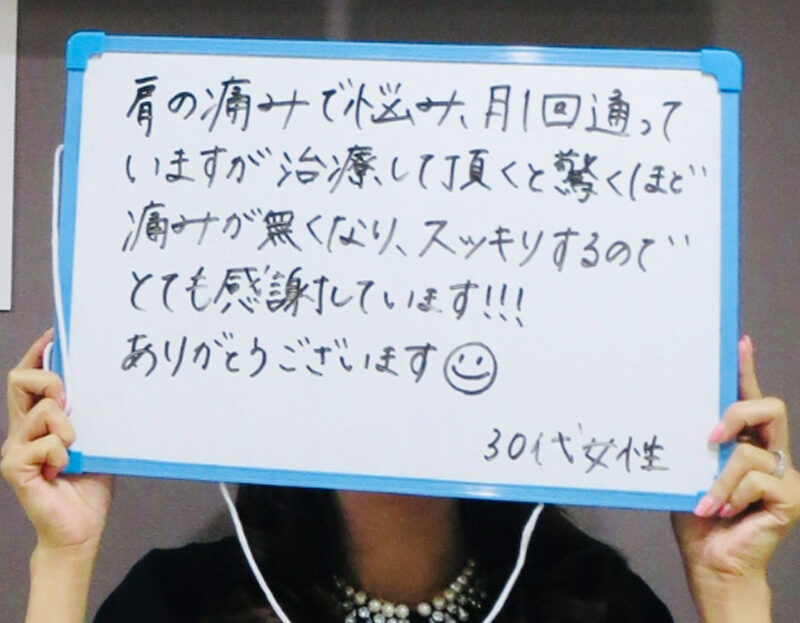 肩の痛みで悩み、月1回通って
いますが治療して頂くと驚くほど
痛みが無くなり、スッキリするので
とても感謝しています!!!
ありがとうございます☺
30代女性